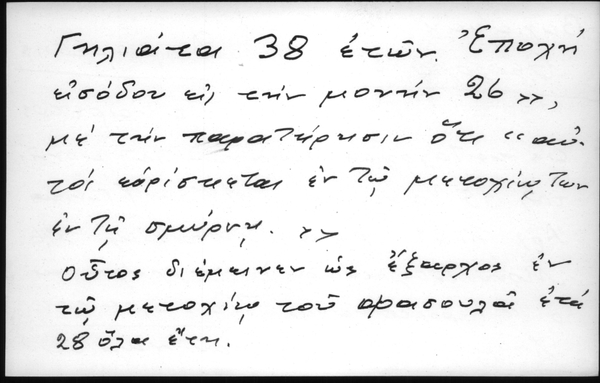 Γηλιάται 38 ἐτῶν. Ἐποχή
εἰσόδου εἰς τήν μονήν 26 »,
μέ τήν παρατήρησιν ὅτι « αὐ-
τός εὑρίσκεται ἐν τῷ μετοχίῳ των
ἐν τῇ σμύρνῃ. »
οὗτος διέμεινεν ὡς ἔξαρχος ἐν
τῷ μετοχίῳ τοῦ ἐπί
28 ὅλα ἔτη.